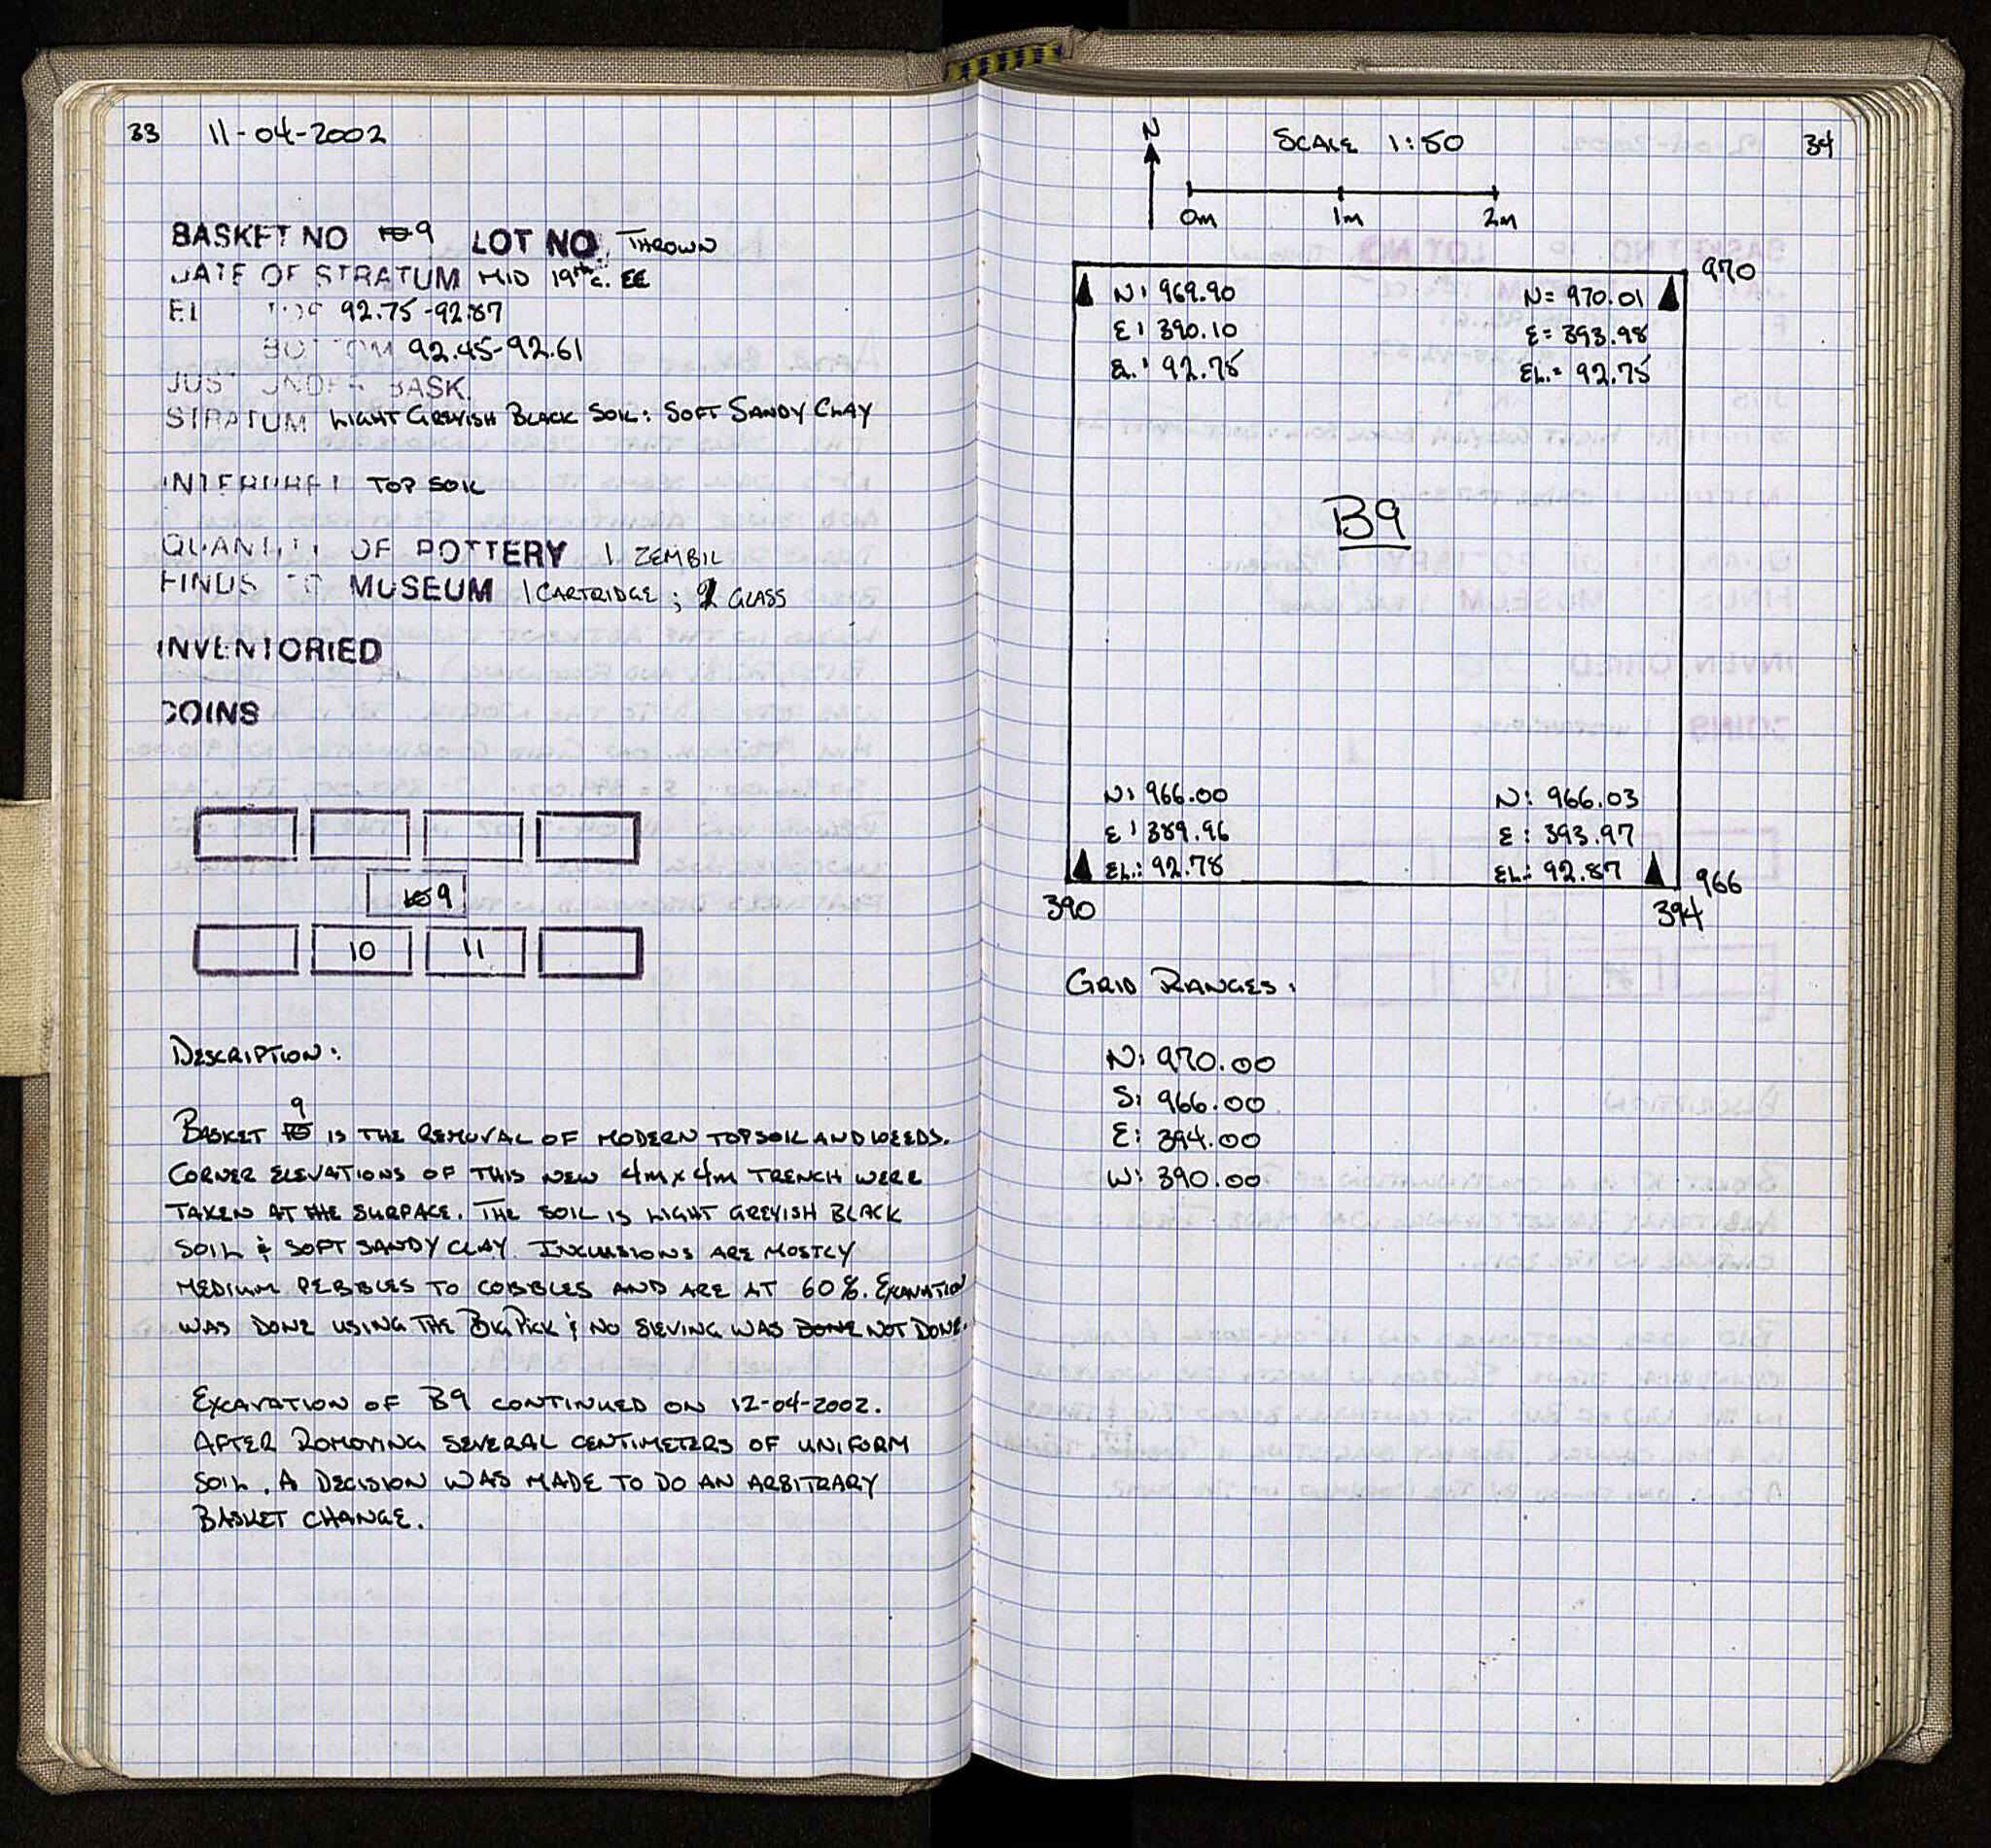 33 11-04-2002
BASKET NO 10 9 LOT NO. THROWN
DATE OF STRATUM MID 19th c. EE
EL TOP 92.75-92.87
BOTTOM 92.45-92.61
JUST UNDER BASK.
STRATUM LIGHT GREYISH BLACK SOIL: SOFT SANDY CLAY
INTERPRET TOP SOIL
QUANTITY OF POTTERY 1 ZEMBIL
FINDS TO MUSEUM 1 CARTRIDGE; 2 GLASS
INVENTORIED
COINS
10 9
10 11
DESCRIPTION:
9
BASKET 10 IS THE REMOVAL OF MODERN TOPSOIL AND WEEDS.
CORNER ELEVATIONS OF THIS NEW 4m x 4m TRENCH WERE
TAKEN AT THE SURFACE. THE SOIL IS LIGHT GREYISH BLACK
SOIL & SOFT SANDY CLAY. INCLUSIONS ARE MOSTLY
MEDIUM PEBBLES TO COBBLES AND ARE AT 60%. EXCAVATION
WAS DONE USING THE BIG PICK & NO SIEVING WAS DONE NOT DONE.
EXCAVATION OF B9 CONTINUED ON 12-04-2002.
AFTER ROMOVING SEVERAL CENTIMETERS OF UNIFORM
SOIL, A DECISION WAS MADE TO DO AN ARBITRARY
BASKET CHANGE.
N SCALE 1:50 34
0m 1m 2m
970
N: 969.90 N= 970.01
E: 390.10 E= 393.98
EL.: 92.75 EL.= 92.75
B9
N: 966.00 N: 966.03
E: 389.96 E: 393.97
EL.: 92.78 EL: 92.87
966
390 394
GRID RANGES:
N: 970.00
S: 966.00
E: 394.00
W: 390.00